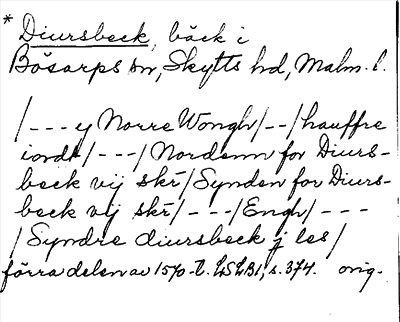 * Diursbeck, bäck i
Bösarps sn, Skytts hd, Malm. l.
/---y Norre Wongh/--/hauffre
iordt/---/Nordenn for Diurs-
beck vij skr̄/Synden for Diurs-
beck vij skr̄/---/Engh/---
/Syndre diursbeck j les/
förra delen av 1570-t. LSLB1, s. 374. orig.